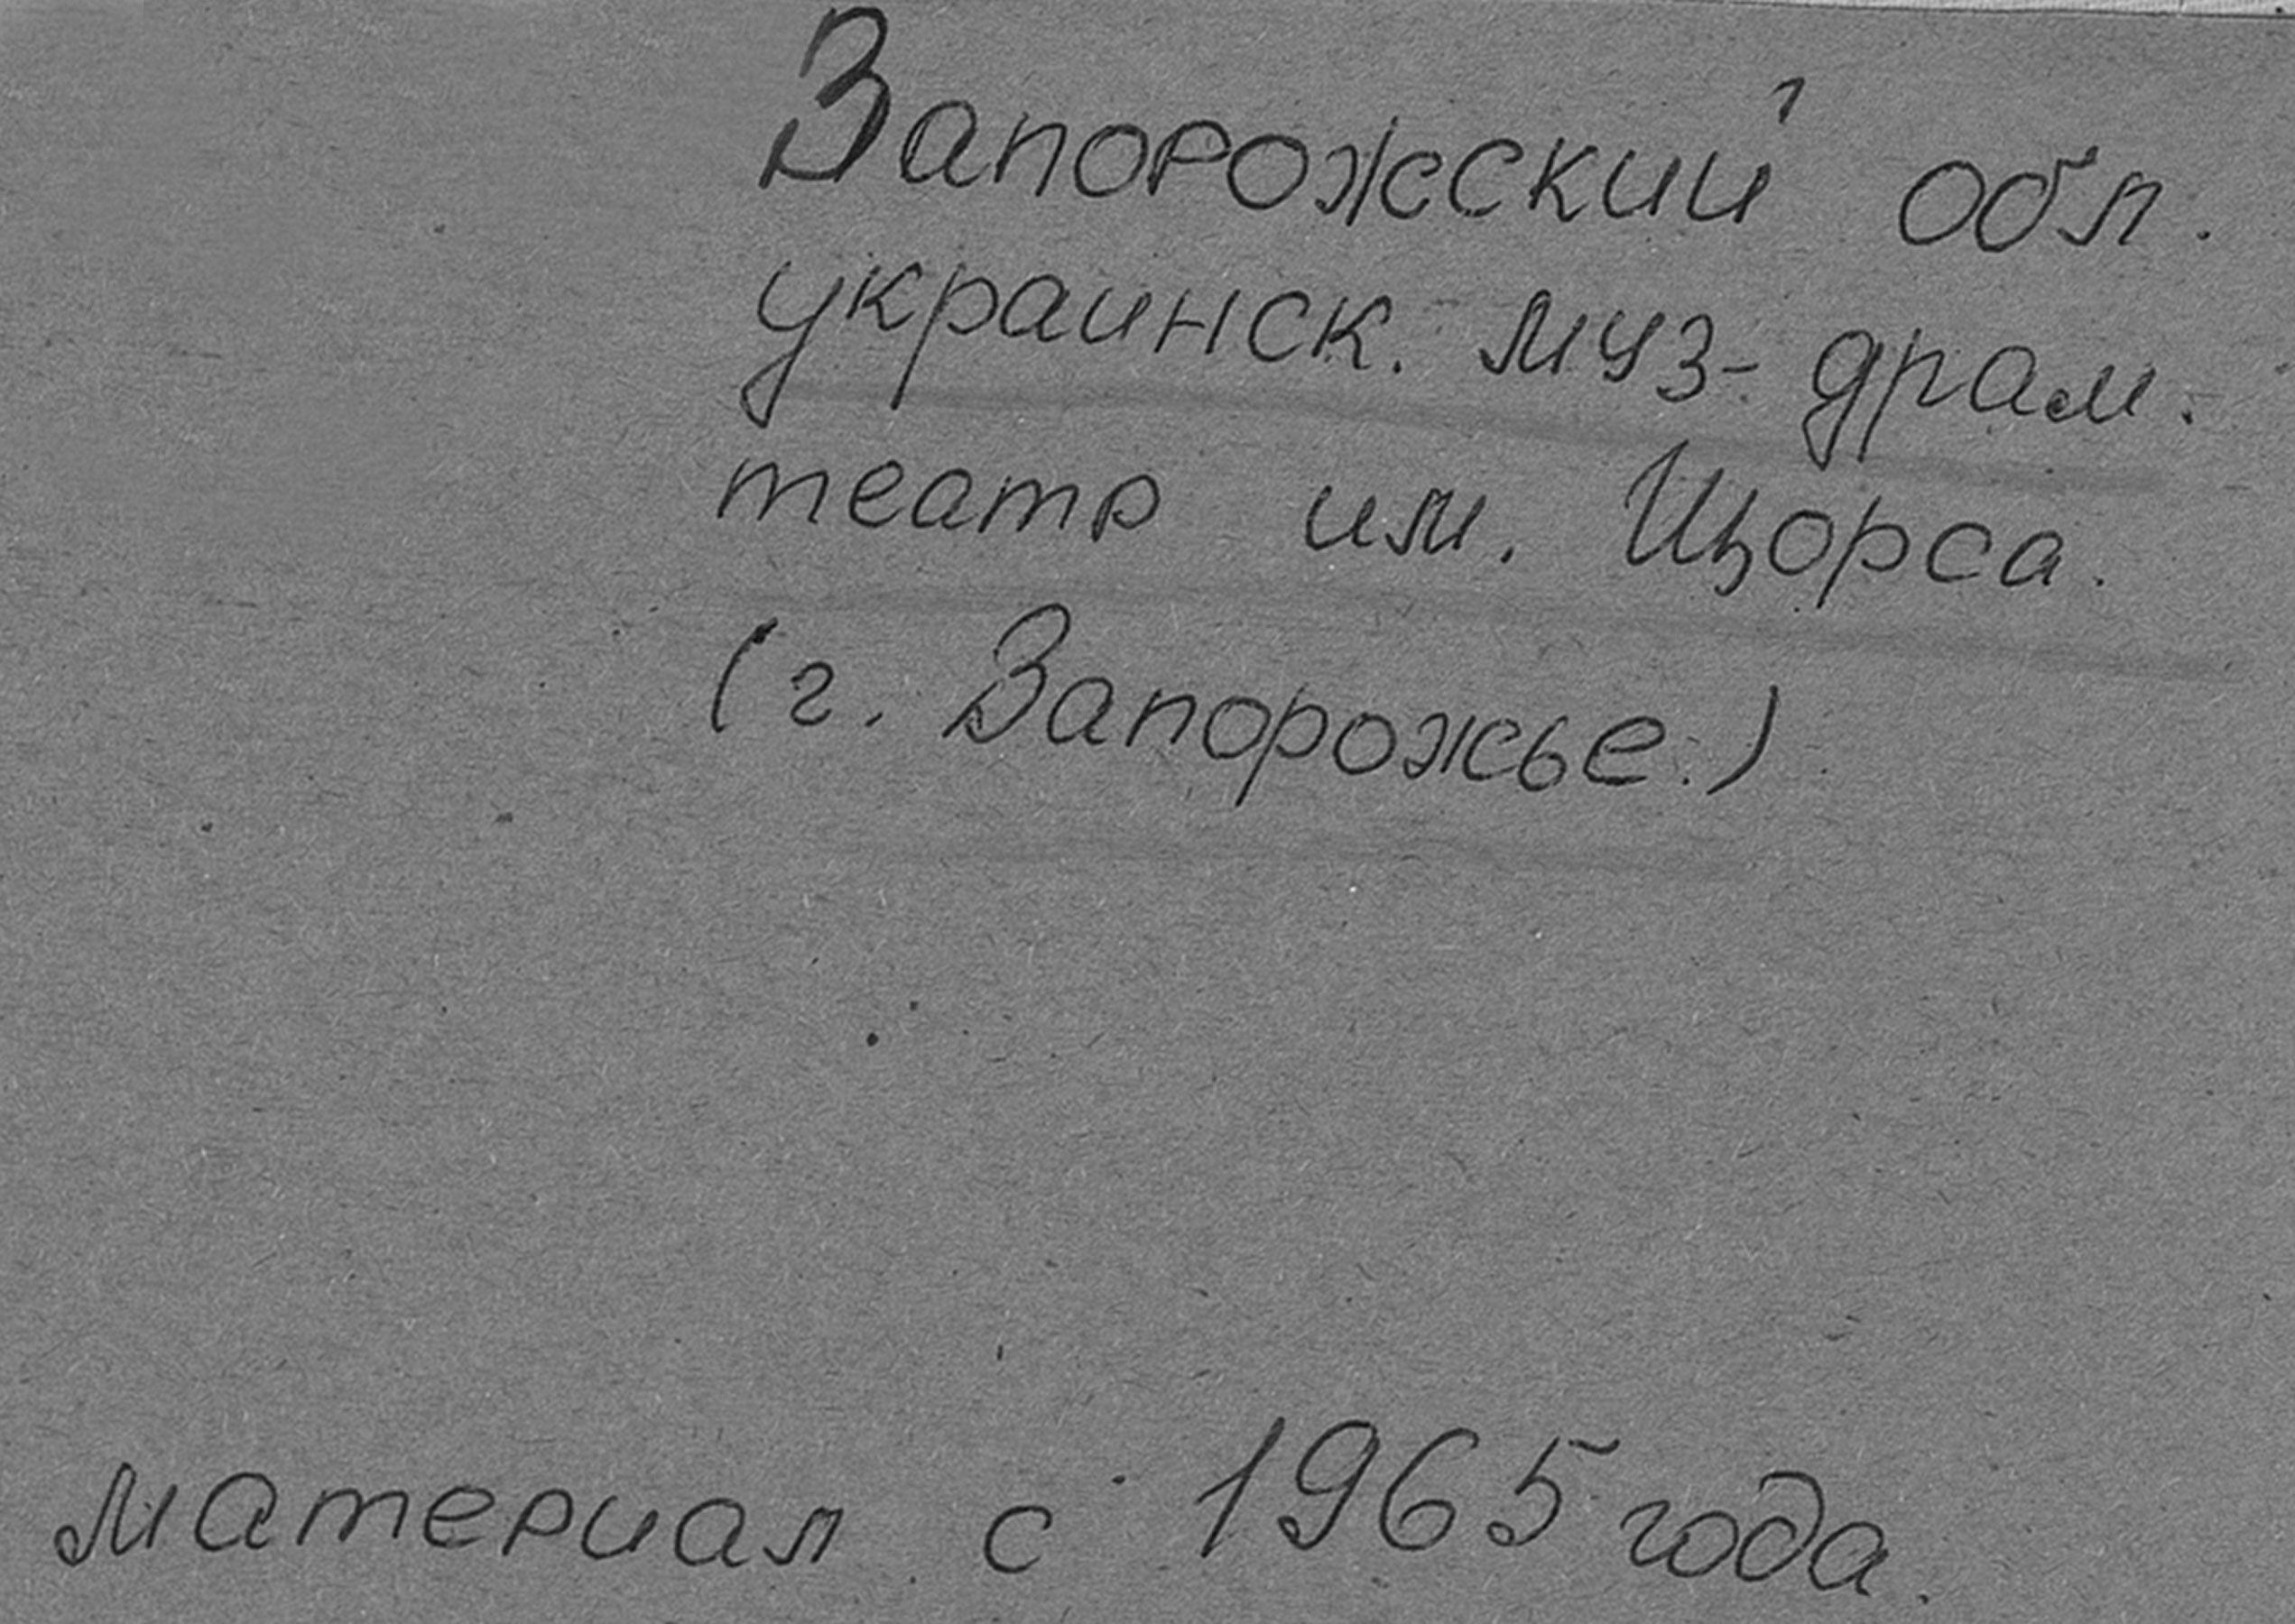 Запорожский обл.
украинск. муз- драм.
театр им. Щорса.
(г. Запорожье.)
материал с 1965 года.